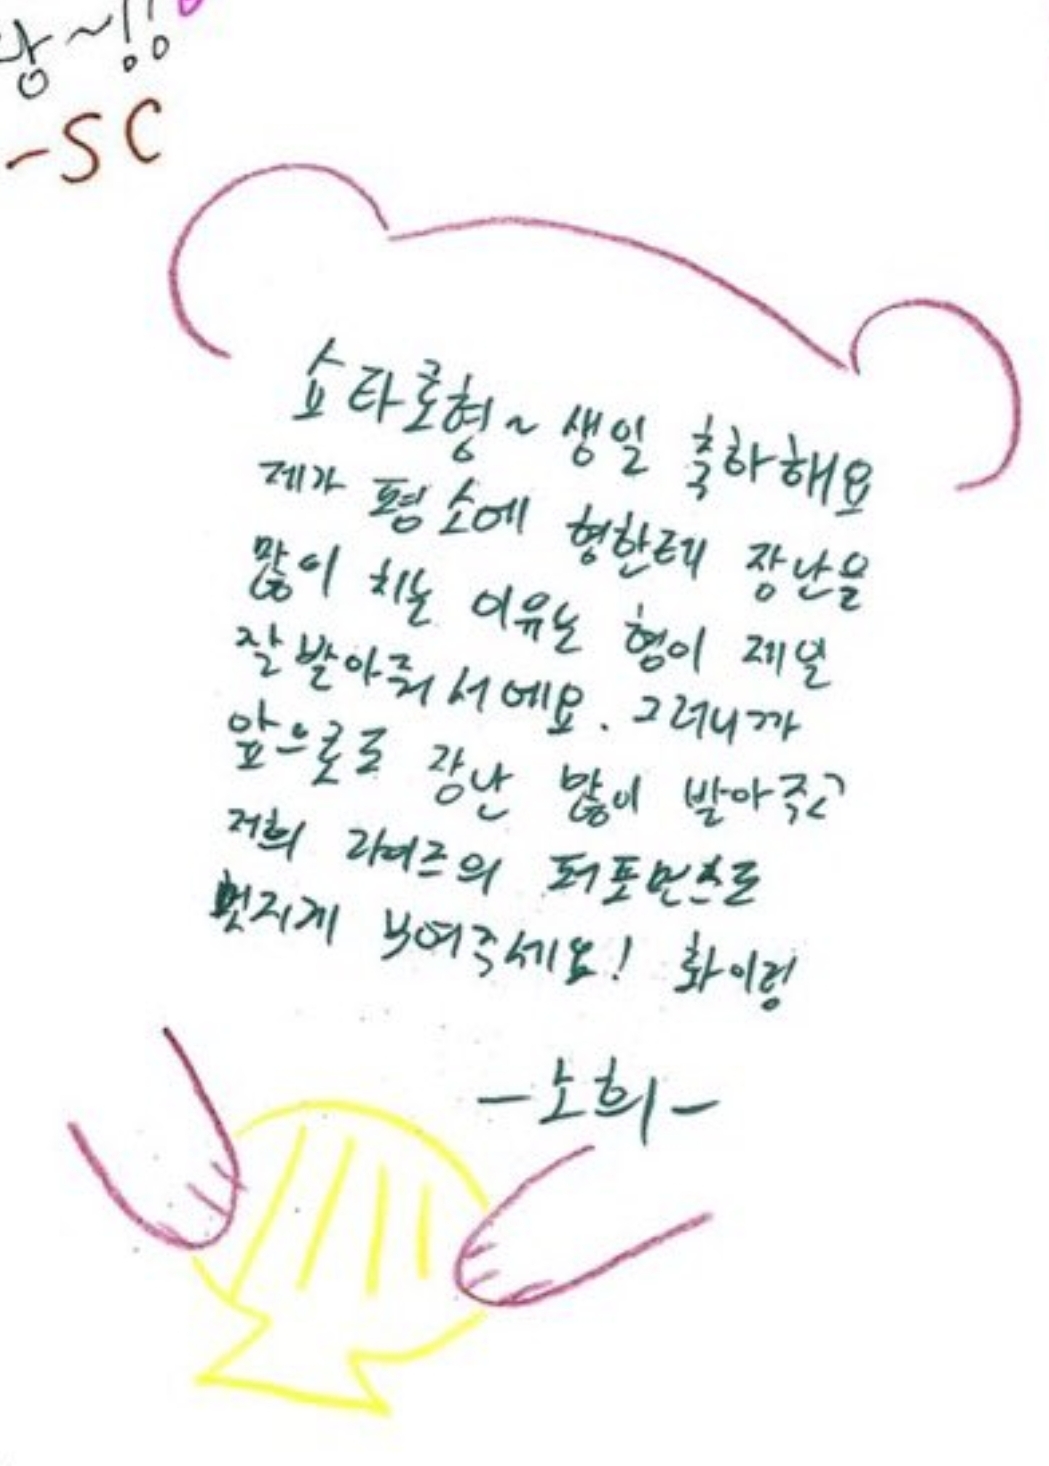 앙~!!
-SC
쇼타로형~ 생일 축하해요
제가 평소에 형한테 장난을
많이 치는 이유는 형이 제일
잘 받아줘서에요. 그러니까
앞으로도 장난 많이 받아주고
저희 라이즈의 퍼포먼스도
멋지게 보여주세요! 화이팅
-소희-